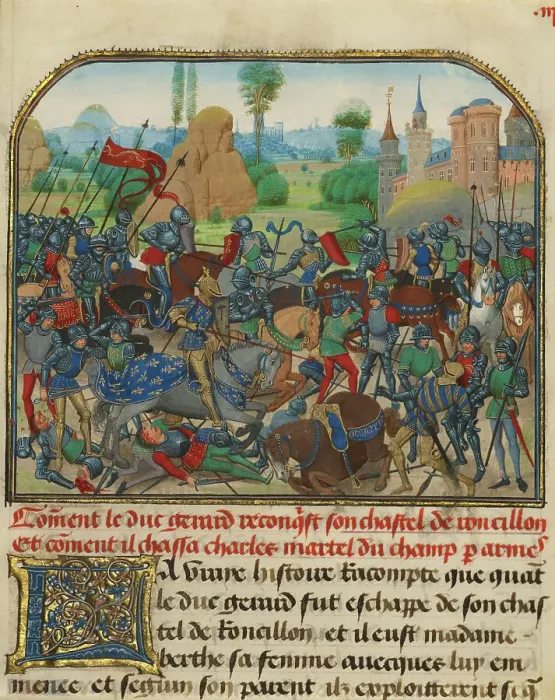 Coment le duc gerard reconqist son chastel de roncillon
Et coment il chassa charles martel du champ p armes
La vraye histoire Racompte que quat
le duc gerard fut eschappe de son chas
tel de Roncillon et il eust madame
berthe sa femme auecques luy em
menee et seguin son parent ilz exploitterent